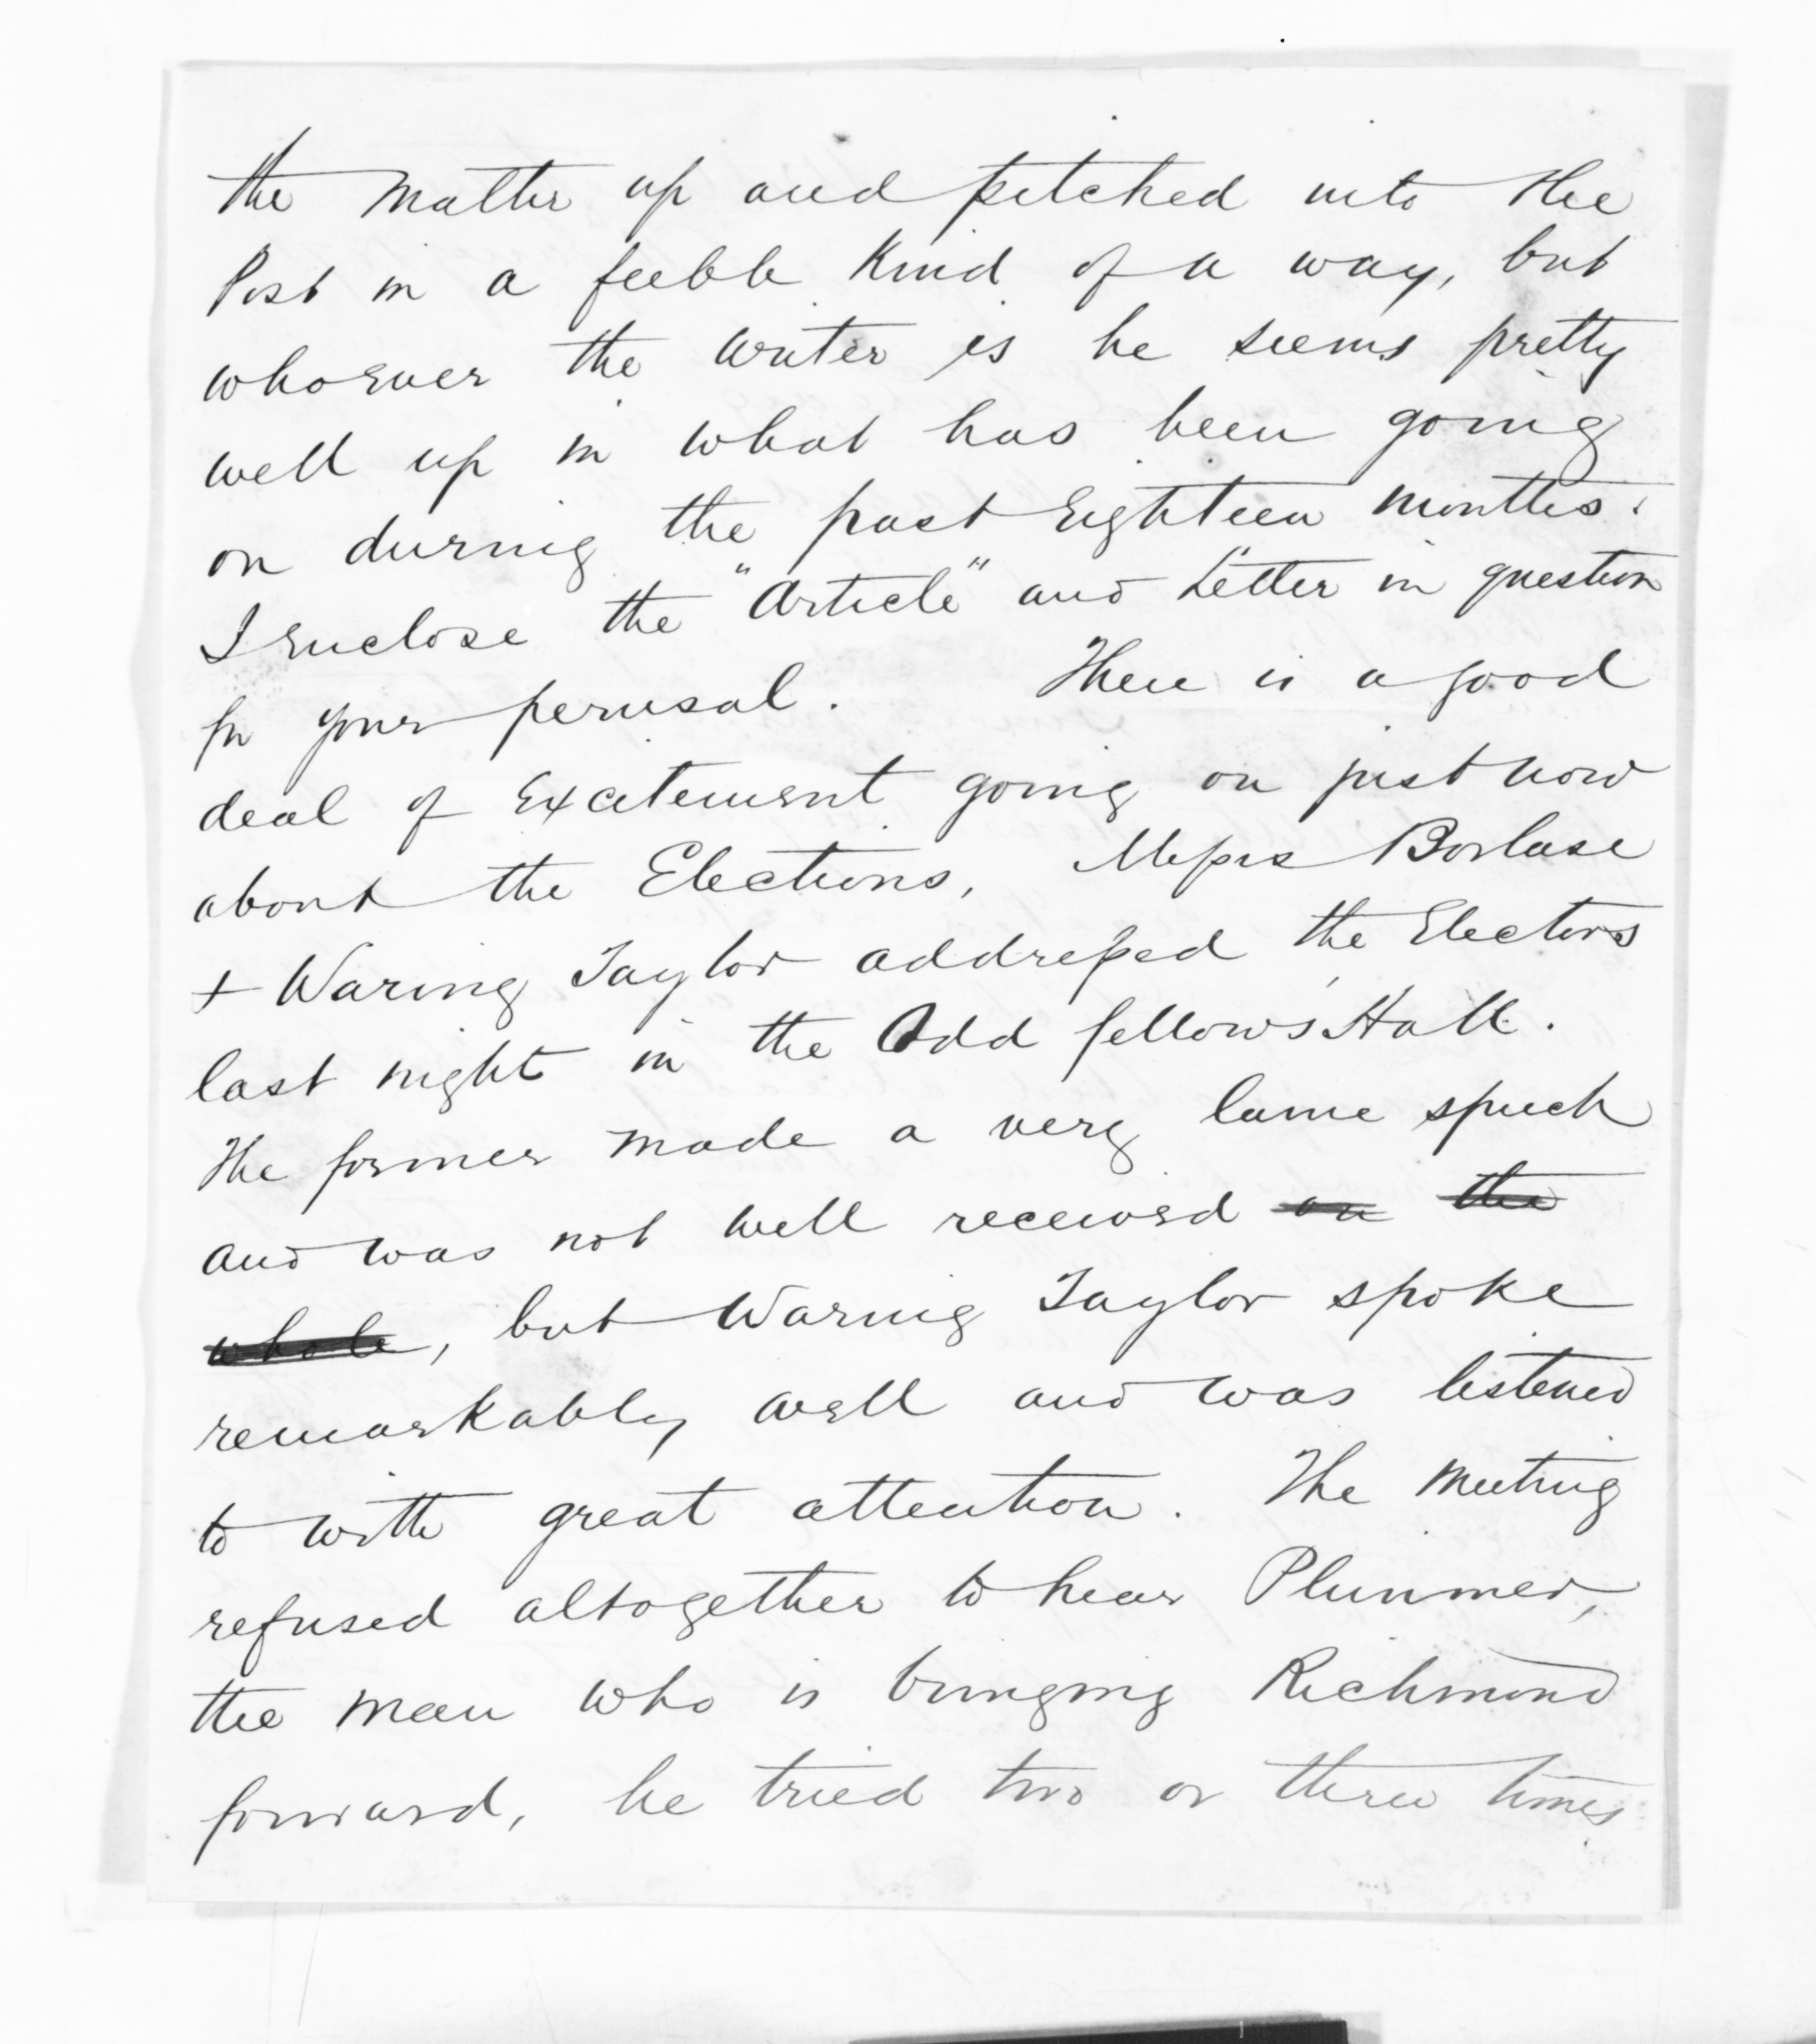 the matter up and pitched into the
Post in a feeble kind of a way, but
whoever the writer is he seems pretty
well up in what has been going
on during the past Eighteen months.
I enclose the "Article" and "Letter in question
for your perusal. There is a good
deal of Excitement going on just now
about the Elections, Messrs Borlase
+ Waring Taylor addressed the Electors
last night in the Odd fellows' Hall.
The former made a very lame speech
and was not well received on the
whole, but Waring Taylor spoke
remarkably well and was listened
to with great attention. The meeting
refused altogether to hear Plimmer,
the man who is bringing Richmond
forward, he tried two or three times